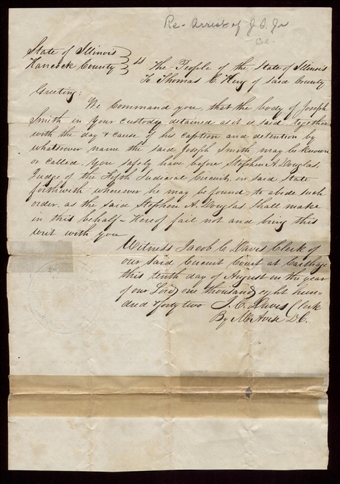 Re- Arrest of J. C. Jr
State of Illinois
Hancock County } ss The People of the State of Illinois
To Thomas C. King of said County
Greeting:
We Command you, that the body of Joseph
Smith in your custody detained as it is said together
with the day & cause of his caption and detention by
whatsoever name the said Joseph Smith may be known
or called. You safely have before Stephen A. Douglas,
Judge of the Fifth Judicial Circuit in said State
forthwith wherever he may be found to abide such
order, as the said Stephen A. Douglas shall make
in this behalf. Hereof fail not and bring this
writ with you
Witness Jacob C. Davis Clerk of
our said Circuit Court at Carthage
this tenth day of August in the year
of our Lord one thousand eight hun-
dred forty two
J. C. Davis Clerk
By D.C.